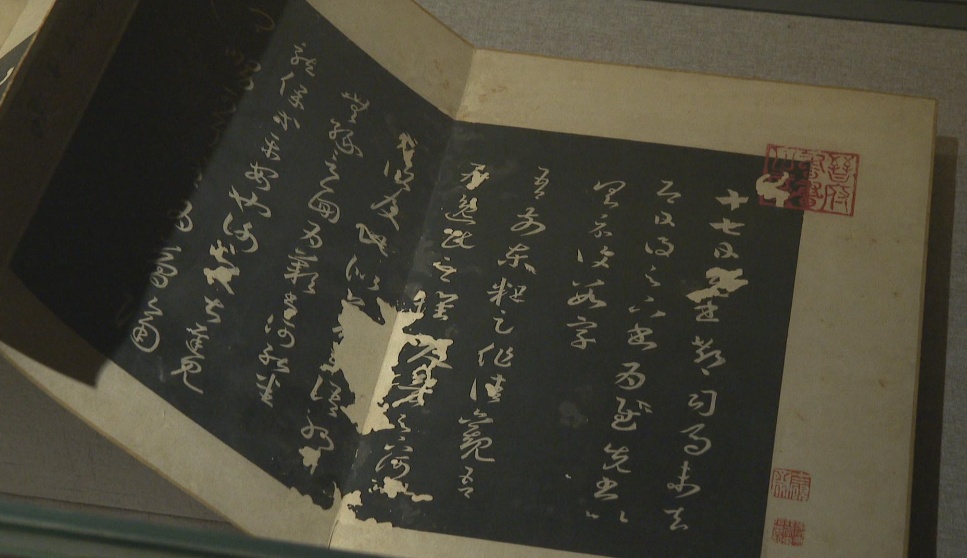 晉府
十七日先書郗司馬未去
即日得足下書為慰先書以
具示復數字
吾前東粗足作佳觀吾
為逸民之懷久矣足下何
復及此似夢中語耶
無緣言面為歎書何能悉
龍保等平安也謝之甚遲見
為簡隔